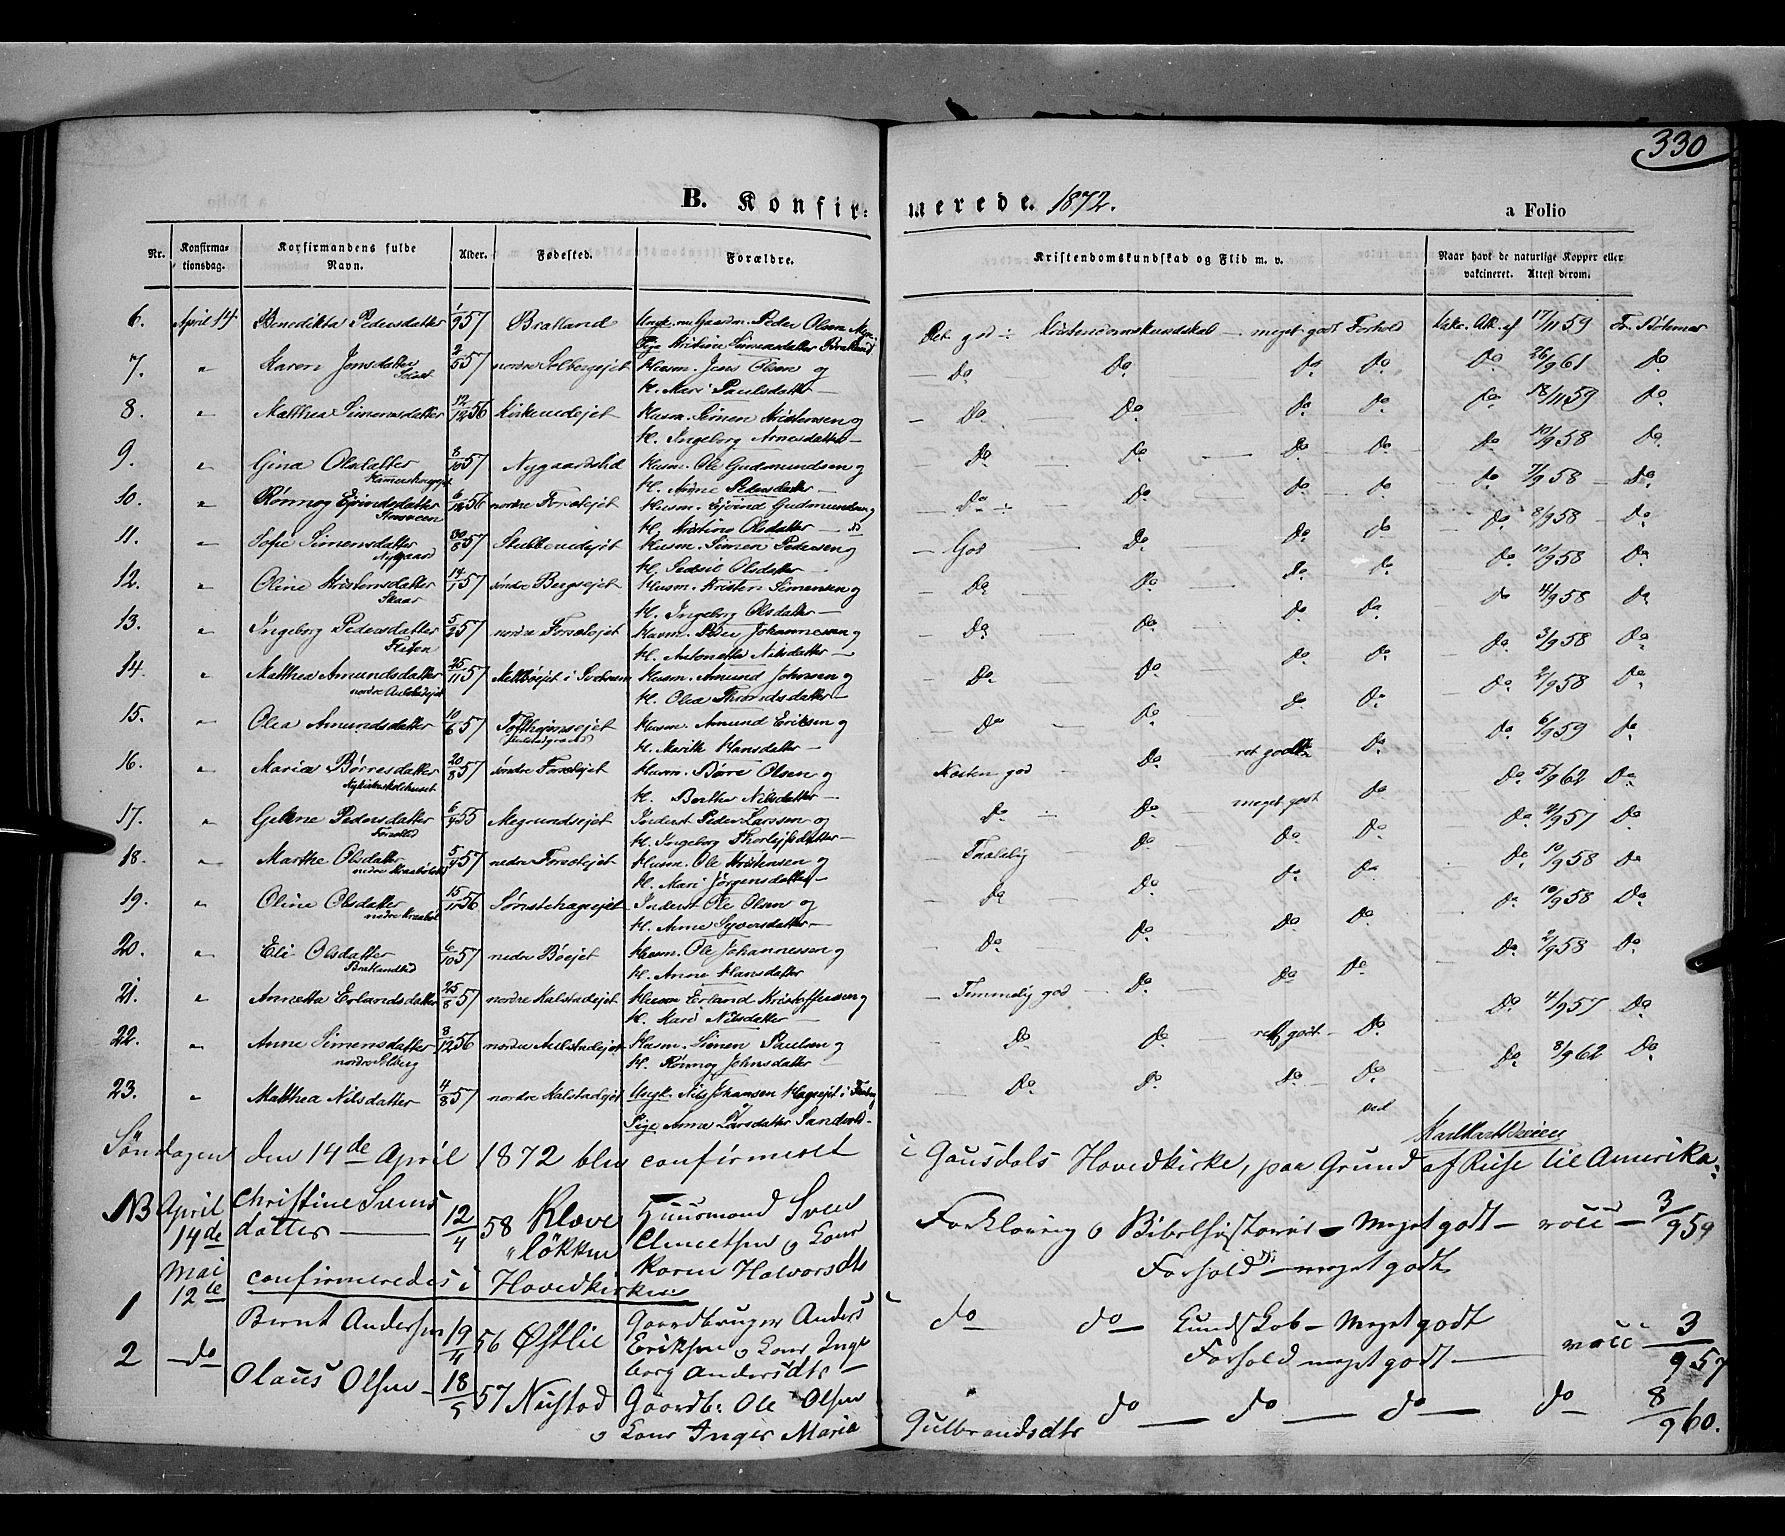 330
B. Konfir- merede. 1872. a Folio
Nr. Konfirmationsdag. Konfirmandens fulde Navn. Alder. Fødested. Forældre. Kristendomskundskab og Flid m. v. Naar havt de naturlige Kopper eller vakcineret. Attest derom.
6. April 14 Benedikta Pedersdatter 1/9 57 Bratland Ungk. og Gaardm. Peder Olsen Pige Kristine Simensdatter Bratland Det god Kristendomskundskab meget godt Forhold Vakc. Att. af 17/11 59
7. " Karen Jonsdatter 2/5 57 nordre Solbergejet Husm. Jens Olsen og
K. Mari Paulsdatter Do Do Do Do Do 26/9 61 Do
8. " Matthea Simensdatter 12/12 56 Kirkerudejet Husm. Simen Kristensen og
K. Ingeborg Arnesdatter Do Do Do Do Do 18/11 59 Do
9. " Gina Olsdatter 8/10 57 Nygaardslid Husm. Ole Gudmundsen og
K. Andrie Pedersdatter Do Do Do Do Do 10/9 58 Do
10. " Rønnog Ejvindsdatter 6/12 56 nordre Forsetejet Husm. Ejvind Gudmundsen og
K. Kristine Olsdatter Do Do Do Do Do 7/9 58 Do
11. " Sofie Simensdatter Nygaard 30/8 57 Stubberudejet Husm. Simen Pedersen og
K. Sidsel Olsdatter God Do Do Do Do 8/9 58 Do
12. " Oline Kristensdatter Skaar 14/1 57 søndre Bergsejet Husm. Kristen Simensen og
K. Ingeborg Olsdatter Do Do Do Do Do 10/9 58 Do
13. " Ingeborg Pedersdatter Flisen 5/2 57 nordre Forsetejet Husm. Peder Johannesen og
K. Antonetta Nilsdatter Do Do Do Do Do 4/9 58 Do
14. " Matthea Amundsdatter 25/11 57 Husm. Amund Johnsen og
K. Olea Throndsdatter Do Do Do Do Do 3/9 58 Do
15. " Olea Amundsdatter 10/6 57 Husm. Amund Eriksen og
K. Marith Hansdatter Do Do Do Do Do 2/9 58 Do
16. " Maria Børresdatter 20/8 57 søndre Forsetejet Husm. Børre Olsen og
K. Berthe Nilsdatter Næsten god Do ret godt Do Do 6/9 59 Do
17. " Pedersdatter 6/4 55 Megrundsejet Inderst Peder Larssen og
K. Ingeborg Thorlejfsdatter Do Do meget godt Do Do 5/9 62 Do
18. " Marthe Olsdatter 5/4 57 nedre Forsetejet Husm. Ole Kristensen og
K. Mari Jørgensdatter Taalelig Do Do Do Do 2/9 57 Do
19. " Olina Olsdatter 15/11 56 Inderst Ole Olsen og
K. Anne Syversdatter Do Do Do Do Do 10/9 58 Do
20. " Eli Olsdatter Bratlandlid 6/10 57 nedre Bøejet Husm. Ole Johannessen og
K. Anne Hansdatter Do Do Do Do Do 10/9 58 Do
21. " Annetta Erlandsdatter 25/8 57 nordre Kalstadejet Husm. Erland Kristoffersen og
K. Mari Nilsdatter Temmelig god Do Do Do Do 2/9 58 Do
22. " Anne Simensdatter nordre Solberg 8/12 56 nordre Aulstadejet Husm. Simen Paulsen og
K. Rønnog Johnsdatter Do Do ret godt Do Do 4/9 57 Do
23. " Matthea Nilsdatter 4/8 57 nordre Kalstadejet Ungk. Nils Johansen Hagejet i
Pige Anne Larsdatter Sandvold Do Do Do Do Do 8/9 62 Do
Søndagen den 14de April 1872 blev confirmeret i Gausdals Hovedkirke, paa Grund af Reise til Amerika:
NB April 14de Christine Svensdatter 12/4 58 Kløveløkken Huusmand Sven
Clmetsen o Kone
Karen Halvorsdtr Forklaring o Bibelhistorie Meget godt Forhold meget godt vacc 3/9 59
Mai 12te confirmeredes i Hovedkirken
1 Bernt Andersen 19/4 56 Østlie Gaardbruger Anders
Eriksen o Kone Ingeborg Andersdtr do do Kundskab Meget godt Forhold meget godt vacc 3/9 57
2 do Olaus Olsen 18/5 57 Nustad Gaardb. Ole Olsen
o Kone Inger Maria Gulbrandsdtr do do do do 8/9 60.